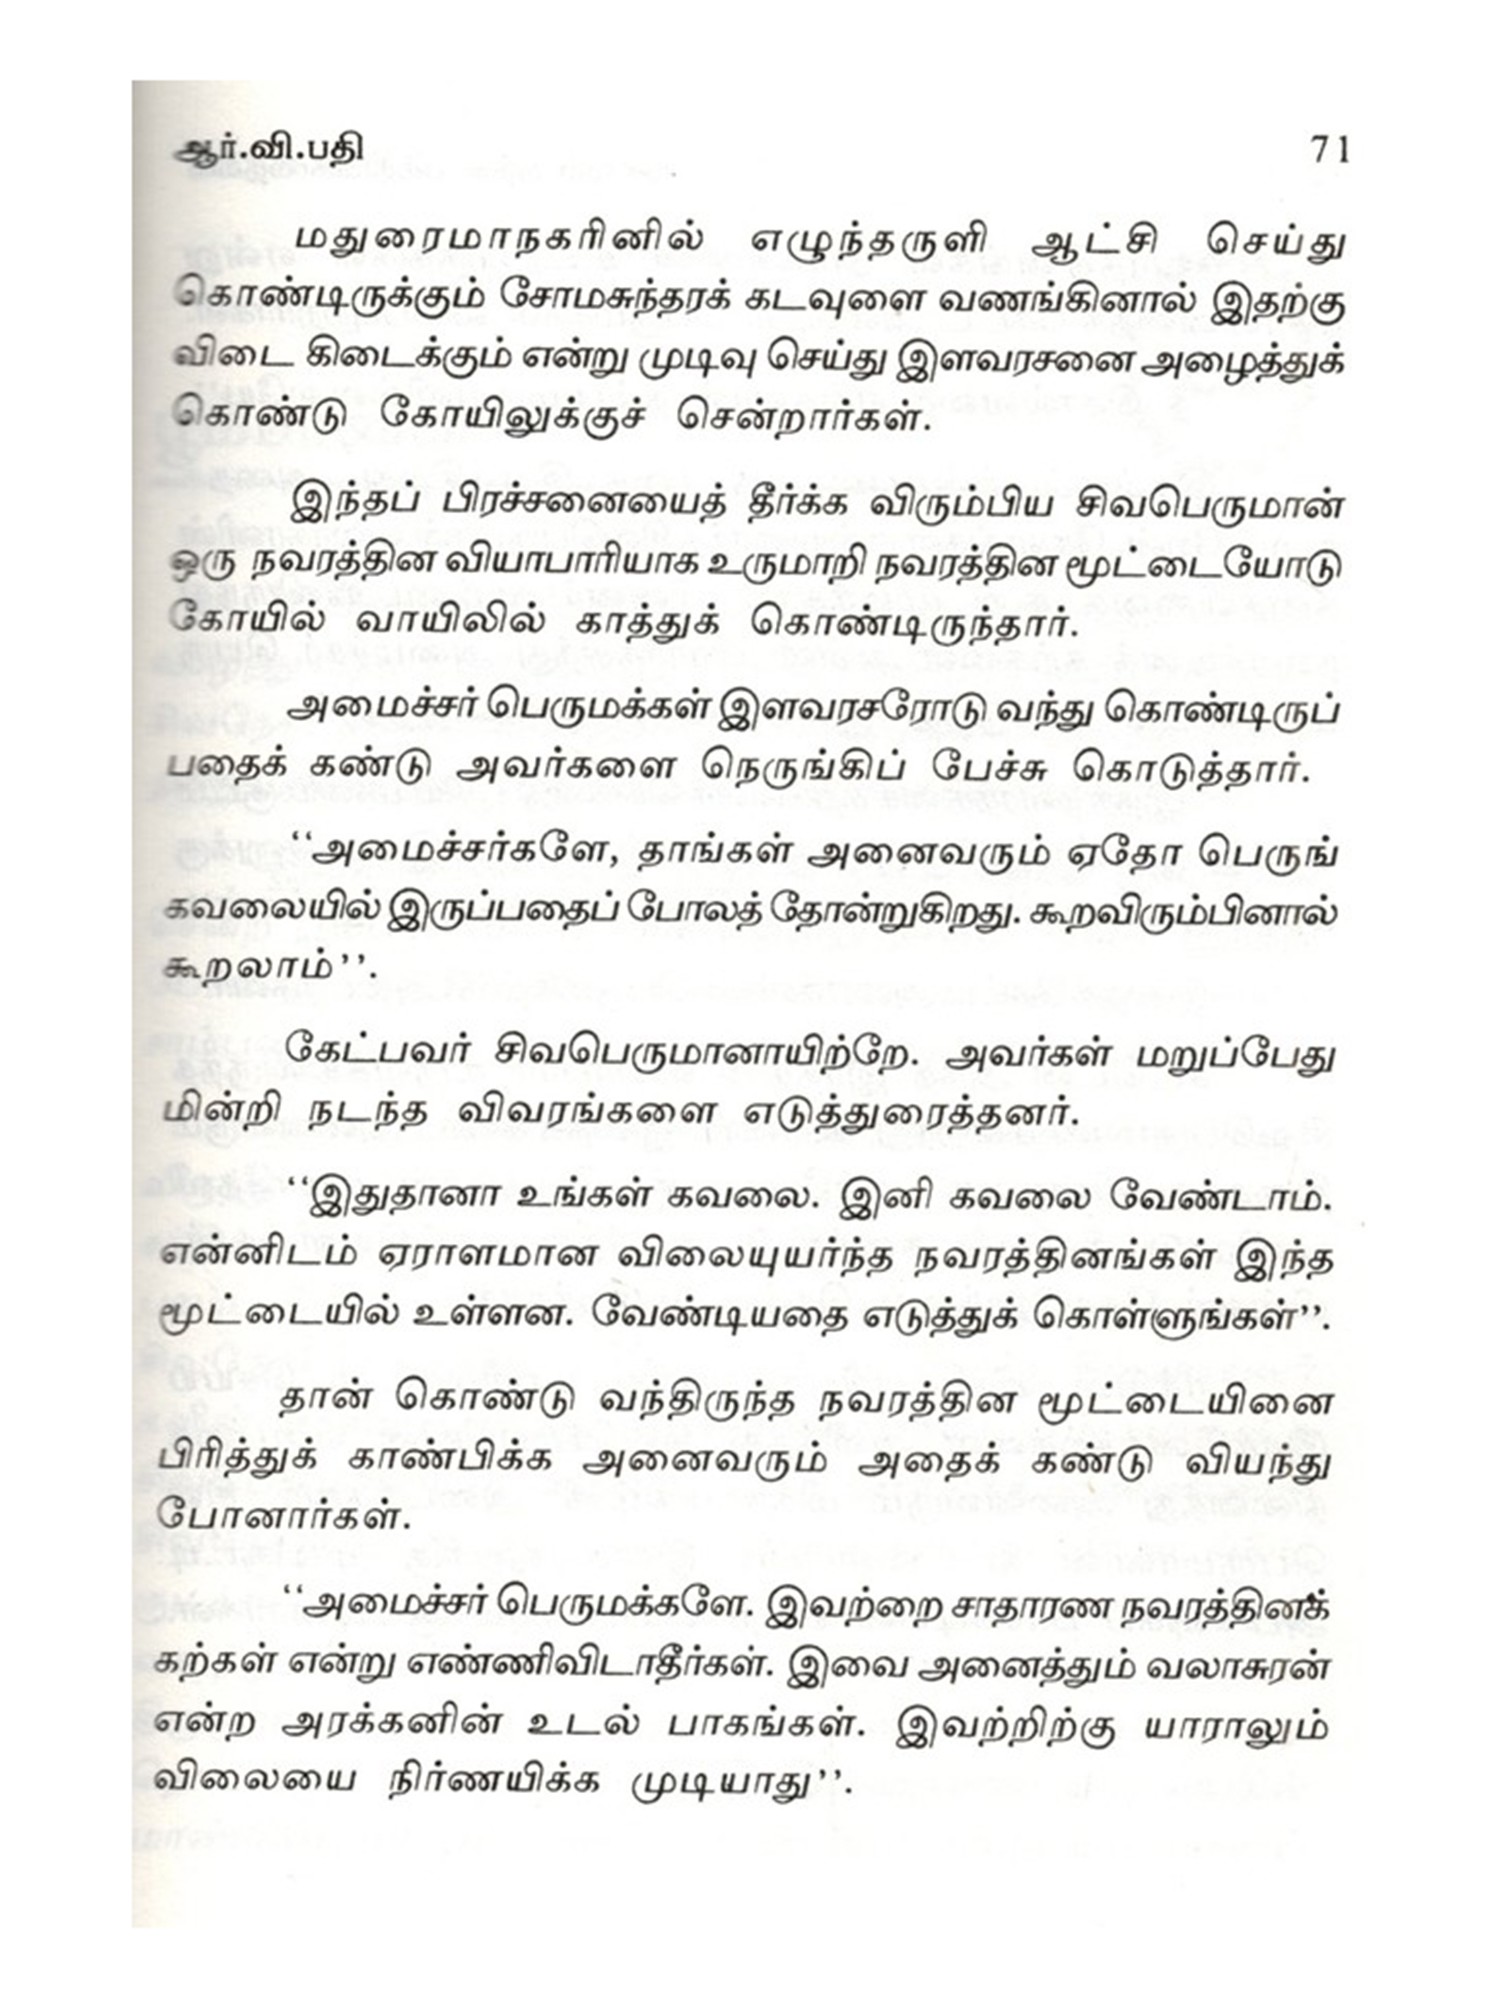 ஆர்.வி.பதி 71
மதுரைமாநகரினில் எழுந்தருளி ஆட்சி செய்து
கொண்டிருக்கும் சோமசுந்தரக் கடவுளை வணங்கினால் இதற்கு
விடை கிடைக்கும் என்று முடிவு செய்து இளவரசனை அழைத்துக்
கொண்டு கோயிலுக்குச் சென்றார்கள்.
இந்தப் பிரச்சனையைத் தீர்க்க விரும்பிய சிவபெருமான்
ஒரு நவரத்தின வியாபாரியாக உருமாறி நவரத்தின மூட்டையோடு
கோயில் வாயிலில் காத்துக் கொண்டிருந்தார்.
அமைச்சர் பெருமக்கள் இளவரசரோடு வந்து கொண்டிருப்
பதைக் கண்டு அவர்களை நெருங்கிப் பேச்சு கொடுத்தார்.
‘‘அமைச்சர்களே, தாங்கள் அனைவரும் ஏதோ பெருங்
கவலையில் இருப்பதைப் போலத் தோன்றுகிறது. கூறவிரும்பினால்
கூறலாம்’’.
கேட்பவர் சிவபெருமானாயிற்றே. அவர்கள் மறுப்பேது
மின்றி நடந்த விவரங்களை எடுத்துரைத்தனர்.
‘‘இதுதானா உங்கள் கவலை. இனி கவலை வேண்டாம்.
என்னிடம் ஏராளமான விலையுயர்ந்த நவரத்தினங்கள் இந்த
மூட்டையில் உள்ளன. வேண்டியதை எடுத்துக் கொள்ளுங்கள்’’.
தான் கொண்டு வந்திருந்த நவரத்தின மூட்டையினை
பிரித்துக் காண்பிக்க அனைவரும் அதைக் கண்டு வியந்து
போனார்கள்.
‘‘அமைச்சர் பெருமக்களே. இவற்றை சாதாரண நவரத்தினக்
கற்கள் என்று எண்ணிவிடாதீர்கள். இவை அனைத்தும் வலாசுரன்
என்ற அரக்கனின் உடல் பாகங்கள். இவற்றிற்கு யாராலும்
விலையை நிர்ணயிக்க முடியாது’’.